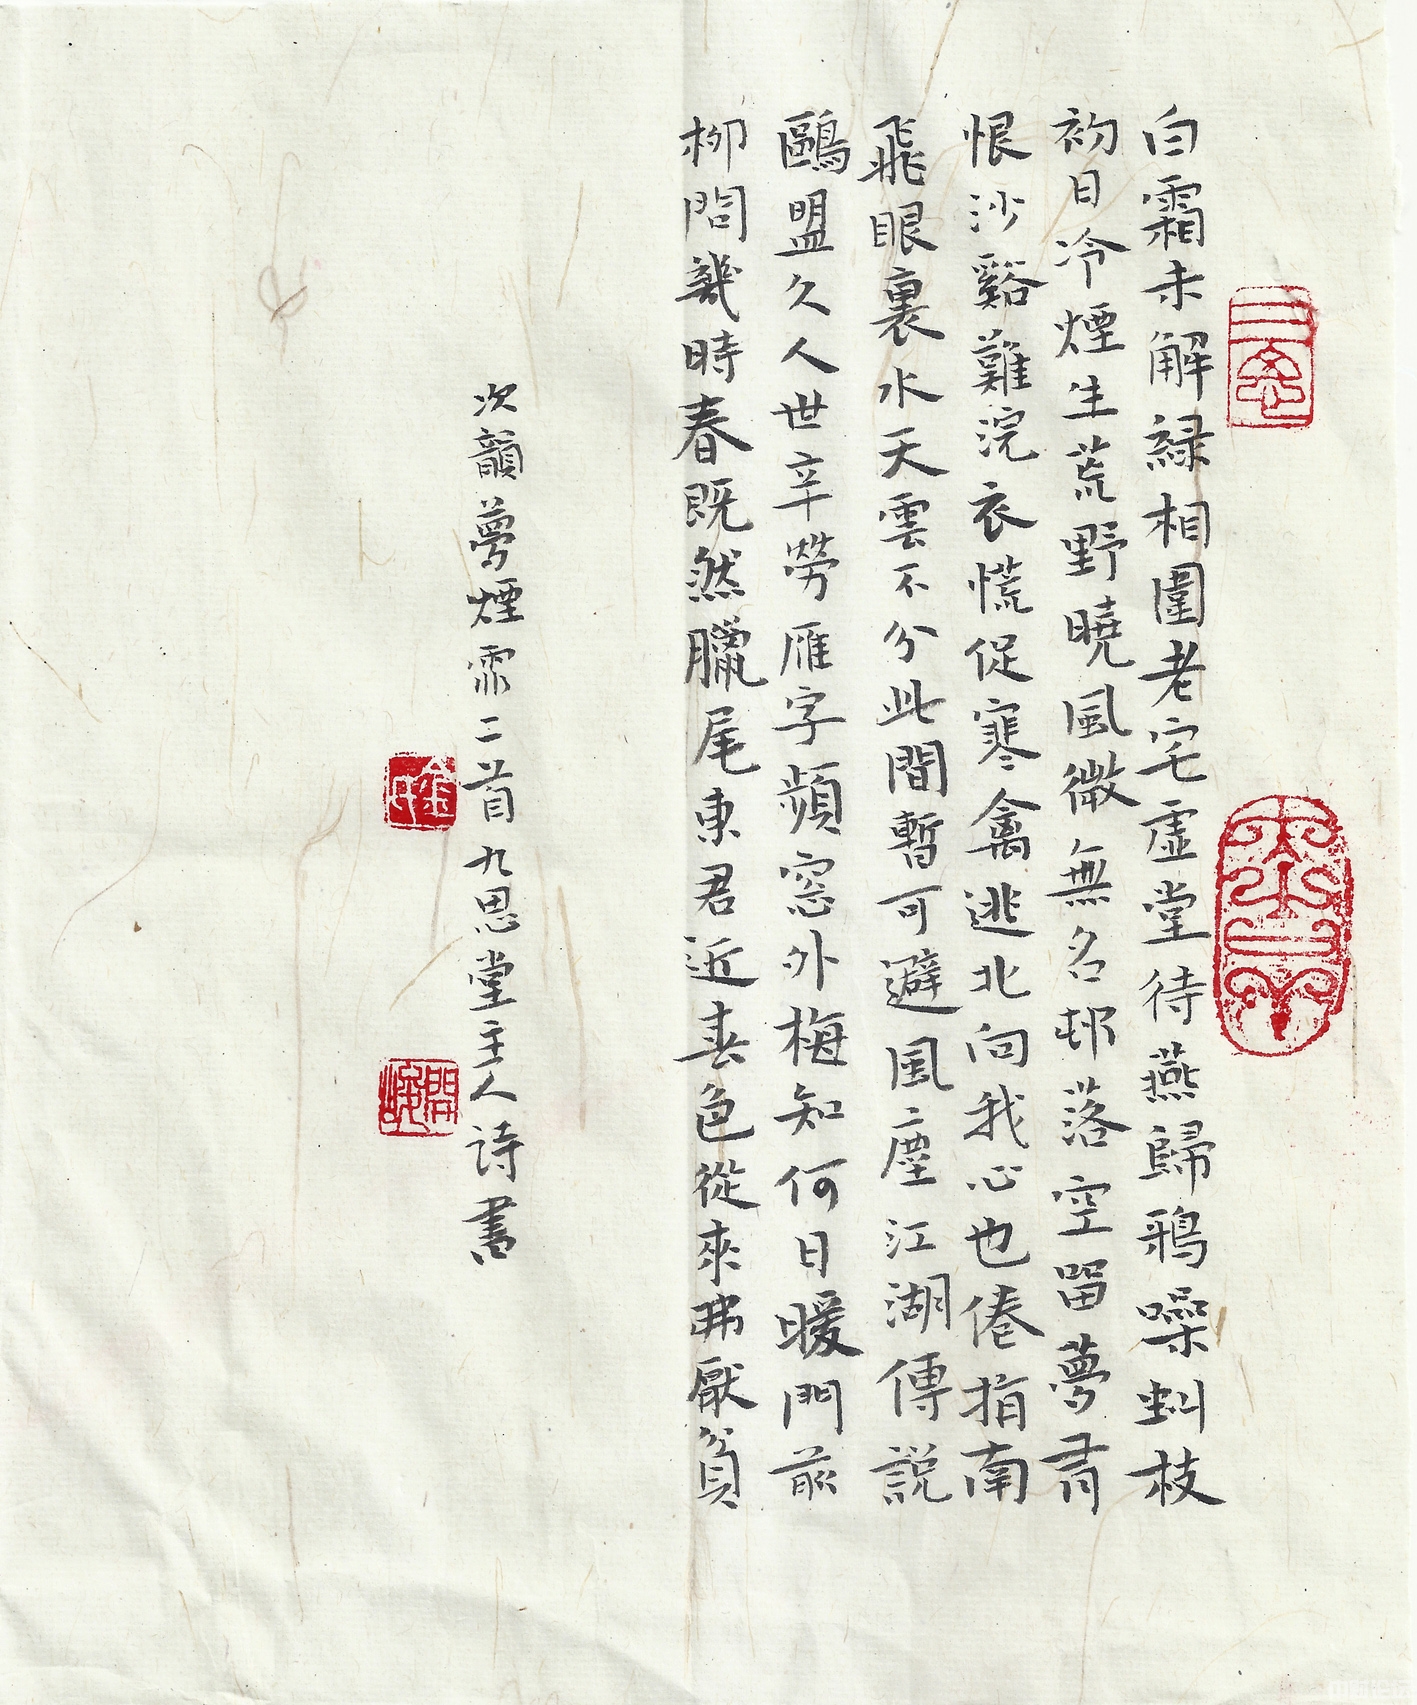 白霜未解綠相圍老宅虛堂待燕歸鴉噪虯枝
初日冷煙生荒野曉風微無名邨落空留夢有
恨沙谿難浣衣慌促寒禽逃北向我心也倦指南
飛眼裏水天雲不分此間暫可避風塵江湖傳說
鷗盟久人世辛勞雁字頻窓外梅知何日暖門前
柳問幾時春既然臘尾東君近春色從來弗厭貧
次韻夢煙霏二首九思堂主人詩書